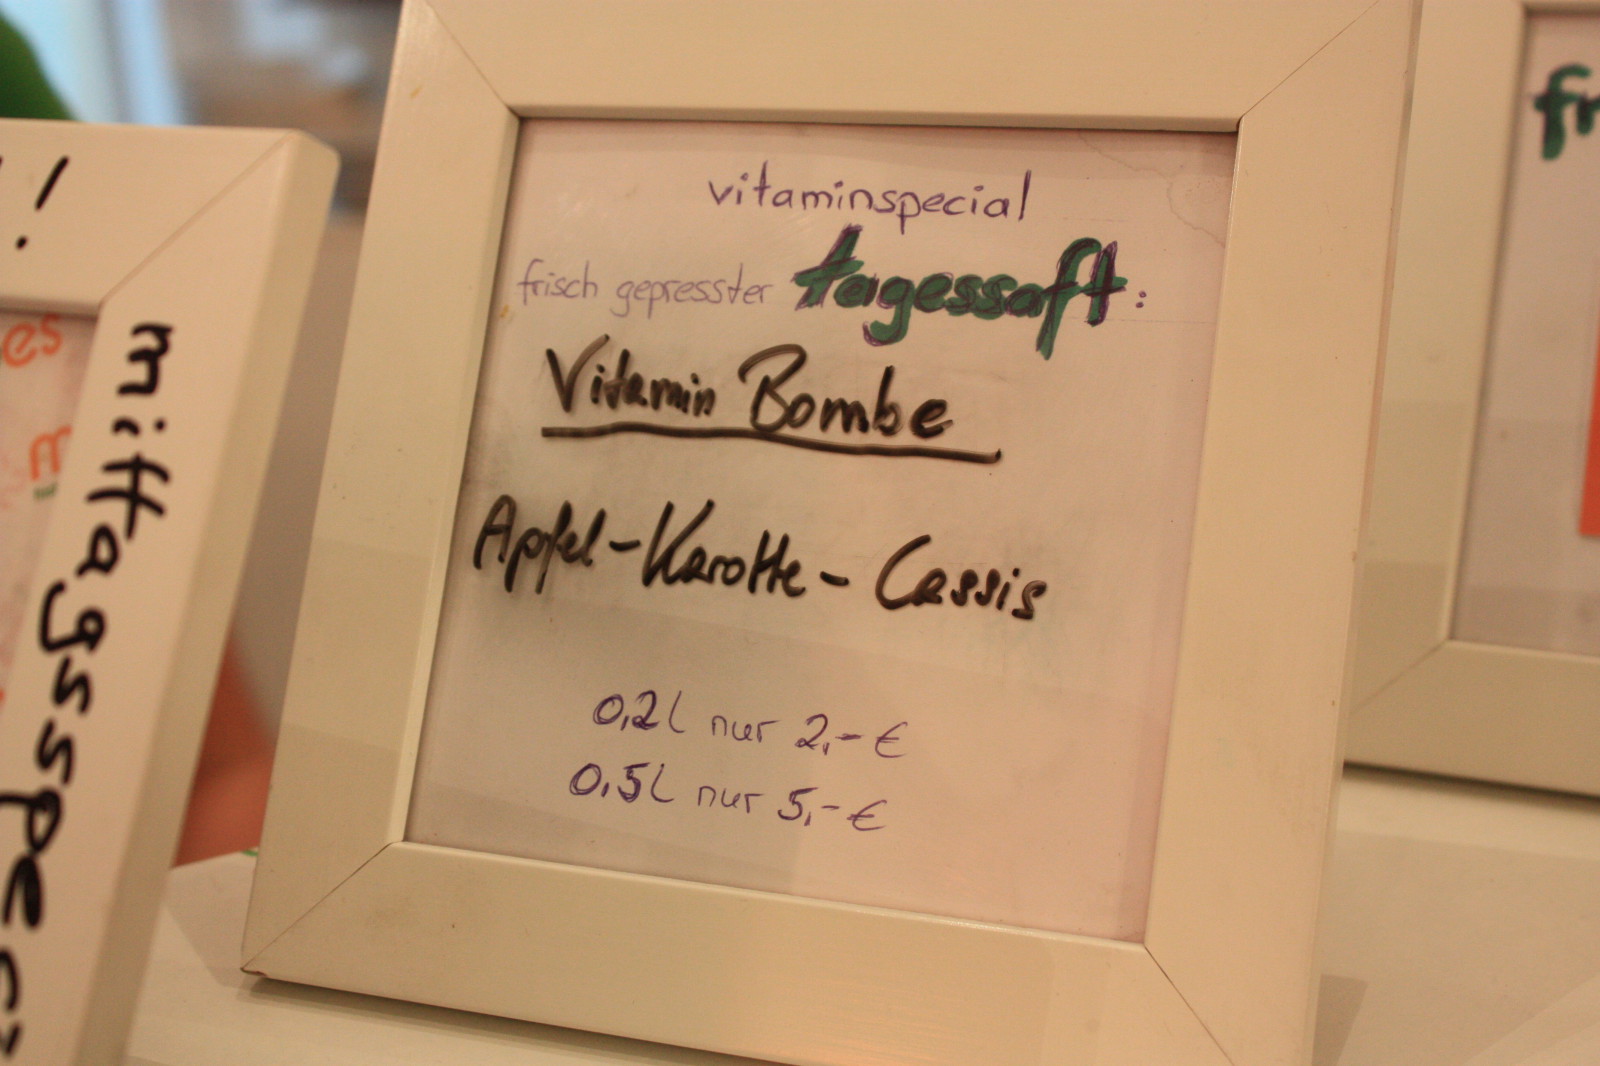 vitaminspecial
frisch gepresster tagessaft:
Vitamin Bombe
Apfel-Karotte-Cassis
0,2l nur 2,-€
0,5l nur 5,-€
!
mittagsspec
es
m
fr